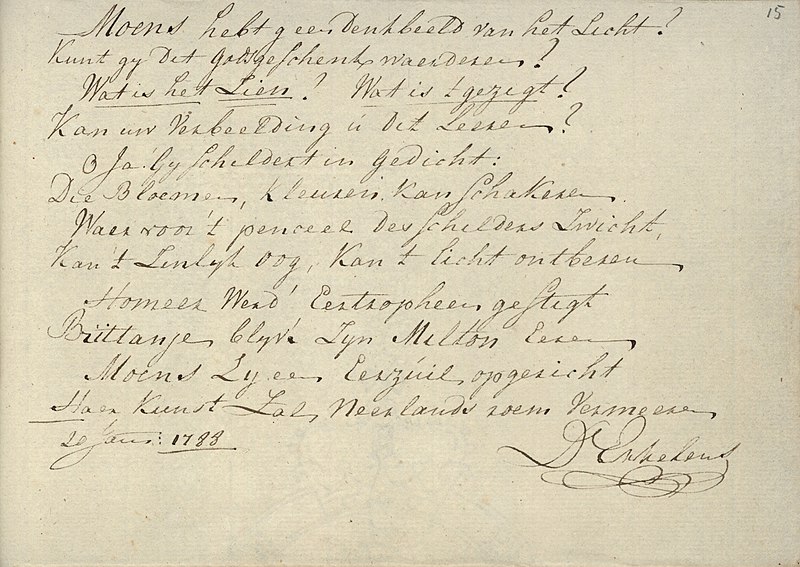 15
Moens hebt geen Denkbeeld van het Licht?
Kunt gy Dit Godsgeschenk waerderen?
Wat is het Zien? Wat is 't gezigt?
Kan uw Verbeelding ú Dit Leeren?
O Ja! Gy schildert in Gedicht:
Die Bloemen, kleuren kan schakeren
Waer voor 't penceel des schilders Zwicht,
Kan 't Zinlyk oog, kan 't licht ontberen
Homeer Werd' Eertropheen gestigt
Brittanje blyv' Zyn Milton Eeren
Moens Zy een Eerzúil opgericht
Haer Kunst Zal Neerlands roem Vermeeren
20 Janr: 1788
D' Erkelens